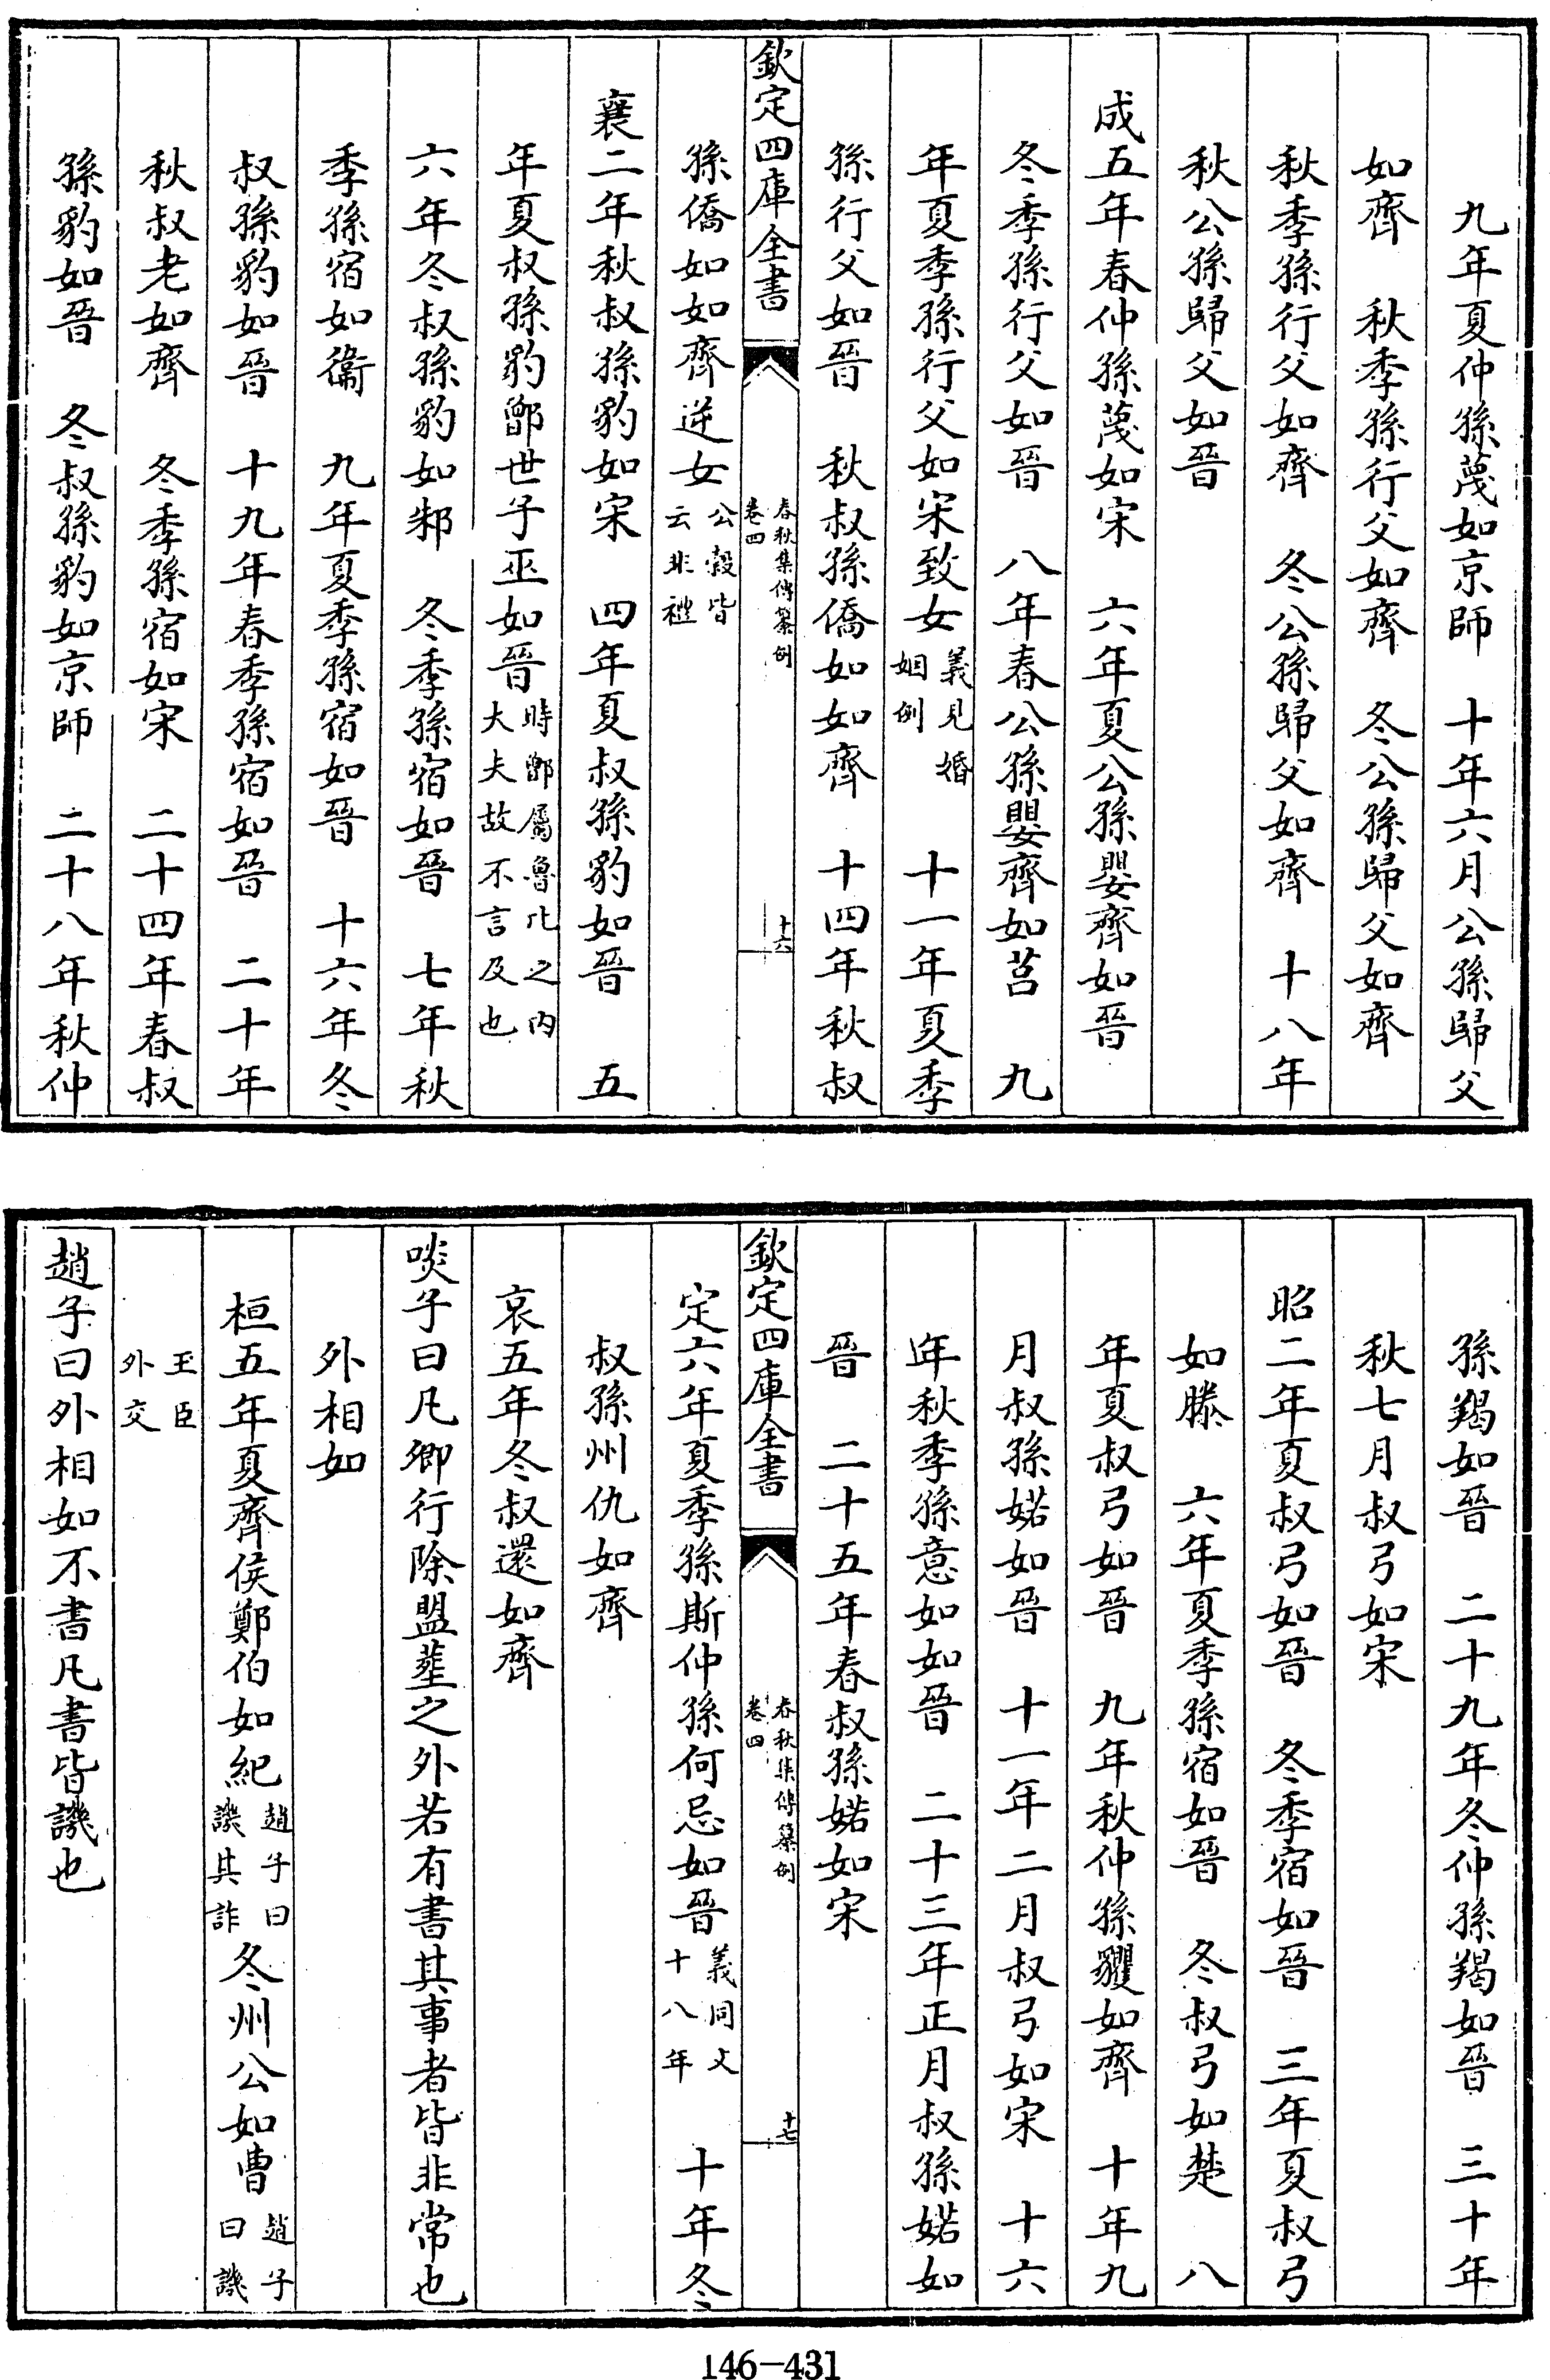 九年夏仲孫蔑如京師　十年六月公孫歸父
如齊　秋季孫行父如齊　冬公孫歸父如齊
秋季孫行父如齊　冬公孫歸父如齊　十八年
秋公孫歸父如晉
成五年春仲孫蔑如宋　六年夏公孫嬰齊如晉
冬季孫行父如晉　八年春公孫嬰齊如莒　九
年夏季孫行父如宋致女義見婚姻例　十一年夏季
孫行父如晉　秋叔孫僑如如齊　十四年秋叔
欽定四庫全書　春秋集傳纂例卷四　十六
孫僑如如齊逆女公穀皆云非禮
襄二年秋叔孫豹如宋　四年夏叔孫豹如晉　五
年夏叔孫豹鄫世子巫如晉時鄫屬魯比之內大夫故不言及也
六年冬叔孫豹如邾　冬季孫宿如晉　七年秋
季孫宿如衛　九年夏季孫宿如晉　十六年冬
叔孫豹如晉　十九年春季孫宿如晉　二十年
秋叔老如齊　冬季孫宿如宋　二十四年春叔
孫豹如晉　冬叔孫豹如京師　二十八年秋仲
孫羯如晉　二十九年冬仲孫羯如晉　三十年
秋七月叔弓如宋
昭二年夏叔弓如晉　冬季宿如晉　三年夏叔弓
如滕　六年夏季孫宿如晉　冬叔弓如楚　八
年夏叔弓如晉　九年秋仲孫貜如齊　十年九
月叔孫婼如晉　十一年二月叔弓如宋　十六
年秋季孫意如如晉　二十三年正月叔孫婼如
晉　二十五年春叔孫婼如宋
欽定四庫全書　春秋集傳纂例卷四　十七
定六年夏季孫斯仲孫何忌如晉義同文十八年　十年冬
叔孫州仇如齊
哀五年冬叔還如齊
啖子曰凡卿行除盟葬之外若有書其事者皆非常也
外相如
桓五年夏齊侯鄭伯如紀趙子曰譏其詐冬州公如曹趙子曰譏
王臣外交
趙子曰外相如不書凡書皆譏也
146-431